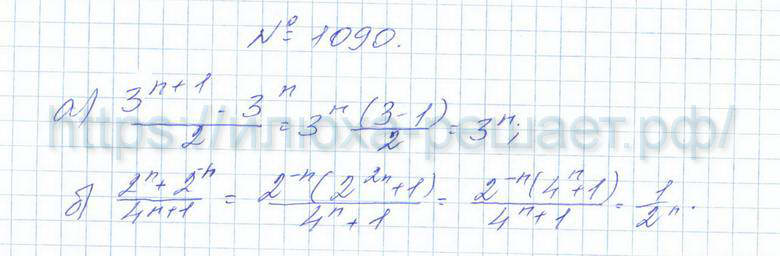 № 1090.
а) (3^{n+1} - 3^n)/2 = 3^n (3-1)/2 = 3^n;
https://илюха-решает.рф/
б) (2^n + 2^{-n})/(4^n+1) = 2^{-n}(2^{2n}+1)/(4^n+1) = 2^{-n}(4^n+1)/(4^n+1) = 1/2^n.